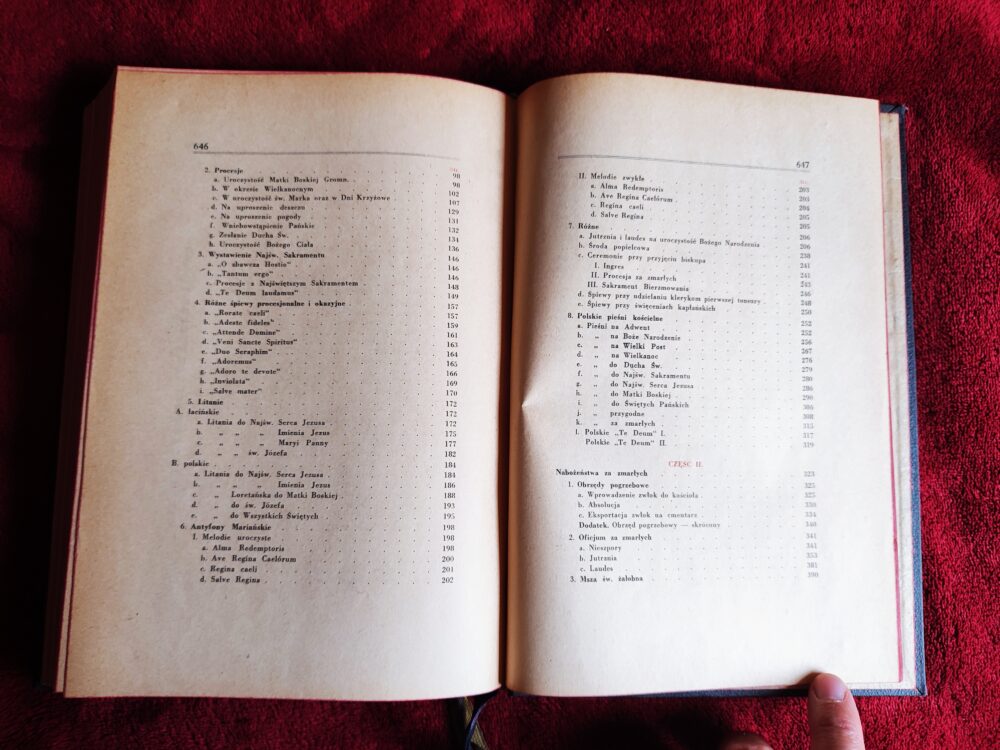 646
Str.
2. Procesje 98
a. Uroczystość Matki Boskiej Gromn. 98
b. W okresie Wielkanocnym 102
c. W uroczystość św. Marka oraz w Dni Krzyżowe 107
d. Na uproszenie deszczu 129
e. Na uproszenie pogody 131
f. Wniebowstąpienie Pańskie 132
g. Zesłanie Ducha Św. 134
h. Uroczystość Bożego Ciała 136
3. Wystawienie Najśw. Sakramentu 146
a. „O zbawcza Hostio" 146
b. „Tantum ergo" 146
c. Procesje z Najświętszym Sakramentem 148
d. „Te Deum laudamus" 149
4. Różne śpiewy procesjonalne i okazyjne 157
a. „Rorate caeli" 157
b. „Adeste fideles" 159
c. „Attende Domine" 161
d. „Veni Sancte Spiritus" 163
e. „Duo Seraphim" 164
f. „Adoremus" 165
g. „Adoro te devote" 166
h. „Inviolata" 169
i. „Salve mater" 170
5. Litanie 172
A. łacińskie 172
a. Litania do Najśw. Serca Jezusa 172
b. „ „ „ Imienia Jezus 175
c. „ „ „ Maryi Panny 177
d. „ „ św. Józefa 182
B. polskie 184
a. Litania do Najśw. Serca Jezusa 184
b. „ „ „ Imienia Jezus 186
c. „ Loretańska do Matki Boskiej 188
d. „ do św. Józefa 193
e. „ do Wszystkich Świętych 195
6. Antyfony Mariańskie 198
I. Melodie uroczyste 198
a. Alma Redemptoris 198
b. Ave Regina Caelórum 200
c. Regina caeli 201
d. Salve Regina 202
647
Str.
II. Melodie zwykłe 203
a. Alma Redemptoris 203
b. Ave Regina Caelórum 204
c. Regina caeli 205
d. Salve Regina 205
7. Różne 206
a. Jutrznia i laudes na uroczystość Bożego Narodzenia 206
b. Środa popielcowa 230
c. Ceremonie przy przyjęciu biskupa 241
I. Ingres 241
II. Procesja za zmarłych 243
III. Sakrament Bierzmowania 246
d. Śpiewy przy udzielaniu klerykom pierwszej tonsury 248
e. Śpiewy przy święceniach kapłańskich 250
8. Polskie pieśni kościelne 252
a. Pieśni na Adwent 252
b. „ na Boże Narodzenie 256
c. „ na Wielki Post 267
d. „ na Wielkanoc 276
e. „ do Ducha Św. 279
f. „ do Najśw. Sakramentu 280
g. „ do Najśw. Serca Jezusa 286
h. „ do Matki Boskiej 290
i. „ do Świętych Pańskich 306
j. „ przygodne 308
k. „ za zmarłych 315
l. Polskie „Te Deum" I. 317
Polskie „Te Deum" II. 319
CZĘŚĆ II.
Nabożeństwa za zmarłych 323
1. Obrzędy pogrzebowe 325
a. Wprowadzenie zwłok do kościoła 325
b. Absolucja 330
c. Eksportacja zwłok na cmentarz 334
Dodatek. Obrzęd pogrzebowy — skrócony 340
2. Oficjum za zmarłych 341
a. Nieszpory 341
b. Jutrznia 353
c. Laudes 381
3. Msza św. żałobna 390